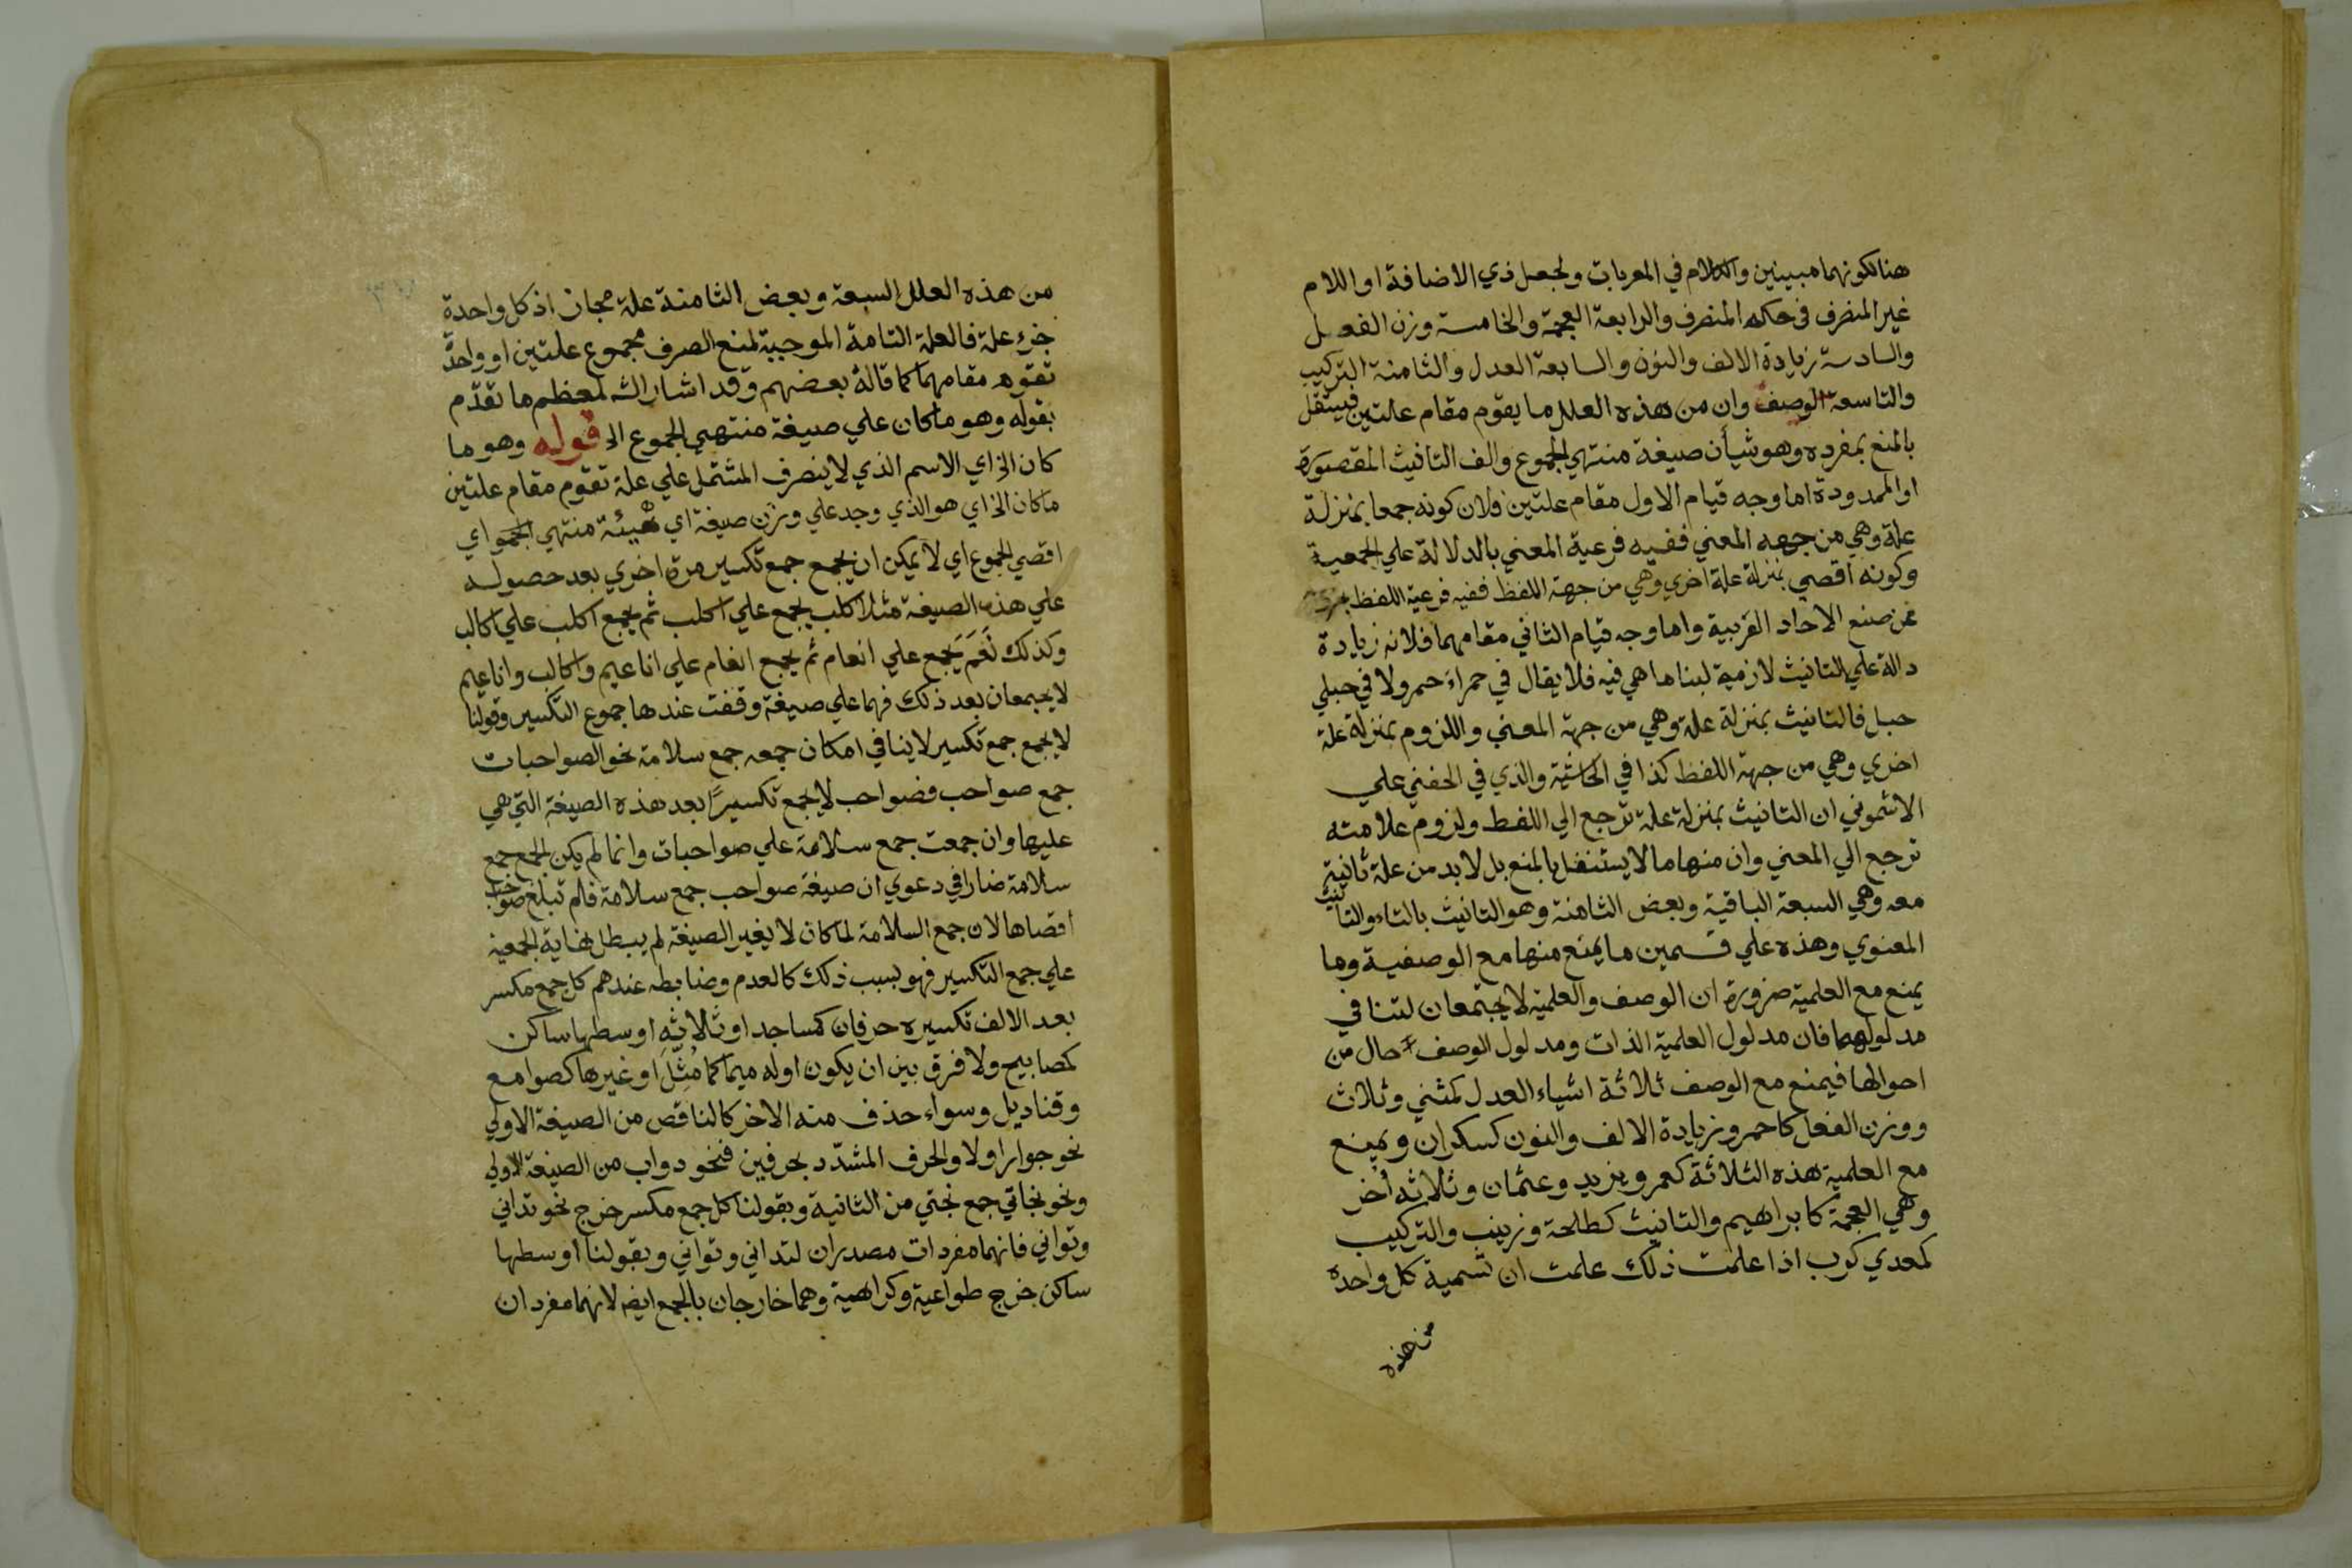 هنا لكونهما مبينين والكلام في المعربات ولجعل ذي الاضافة او اللام
غير المنصرف في حكم المنصرف والرابعة العجمة والخامسة وزن الفعل
والسادسة زيادة الالف والنون والسابعة العدل والثامنة التركيب
والتاسعة الوصف وان من هذه العلل ما يقوم مقام علتين فيستقل
بالمنع بمفرده وهو شيأن صيغة منتهي الجموع والف التانيث المقصورة
او الممدودة اما وجه قيام الاول مقام علتين فلان كونه جمعا بمنزلة
علة وهي من جهه المعني ففيه فرعية المعني بالدلالة علي الجمعية
وكونه اقصي بمنزلة علة اخري وهي من جهة اللفظ ففيه فرعية اللفظ
عن صنع الاحاد العربية واما وجه قيام الثاني مقامهما فلانه زيادة
دالة علي التانيث لازمة لبنا ما هي فيه فلا يقال في حمراء حمر ولا في حبلي
حبل فالتانيث بمنزلة علة وهي من جهة المعني واللزوم بمنزلة علة
اخري وهي من جهة اللفظ كذا في الحاشية والذي في الحفني علي
الاشموني ان التانيث بمنزلة علة ترجع الي اللفظ ولزوم علامته
ترجع الي المعني وان منها ما لا يستقل بالمنع بل لا بد من علة ثانية
معه وهي السبعة الباقية وبعض الثامنة وهو التانيث بالتاء والتانيث
المعنوي وهذه علي قسمين ما يمنع منها مع الوصفية وما
يمنع مع العلمية ضرورة ان الوصف والعلمية لا يجتمعان لتنافي
مدلولهما فان مدلول العلمية الذات ومدلول الوصف حال من
احوالها فيمنع مع الوصف ثلاثة اشياء العدل كمثني وثلاث
ووزن الفعل كاحمر وزيادة الالف والنون كسكران ويمنع
مع العلمية هذه الثلاثة كعمر ويزيد وعثمان وثلاثه أخر
وهي العجمة كابراهيم والتانيث كطلحة وزينب والتركيب
كمعدي كرب اذا علمت ذلك علمت ان تسمية كل واحدة
من هذه
من هذه العلل السبعة وبعض الثامنة علة مجاز اذ كل واحدة
جزء علة فالعلة التامة الموجبة لمنع الصرف مجموع علتين او واحدة
تقوم مقامهما كما قاله بعضهم وقد اشار الش لمعظم ما تقدم
بقوله وهو ما كان علي صيغة منتهي الجموع الخ قوله وهو ما
كان الخ اي الاسم الذي لا ينصرف المشتمل علي علة تقوم مقام علتين
ما كان الخ اي هو الذي وجد علي وزن صيغة اي هيئة منتهي الجمو اي
اقصي الجموع اي لا يمكن ان يجمع جمع تكسير مرة اخري بعد حصوله
علي هذه الصيغة مثلا كلب يجمع علي اكلب ثم يجمع اكلب علي اكالب
وكذلك نَعَم يَجمع علي انعام ثم يجمع انعام علي اناعيم واكالب واناعيم
لا يجمعان بعد ذلك فهما علي صيغة وقفت عندها جموع التكسير وقولنا
لا يجمع جمع تكسير لا ينافي امكان جمعه جمع سلامة نحو الصواحبات
جمع صواحب فصواحب لا يجمع تكسيرًا بعد هذه الصيغة التي هي
عليها وان جمعت جمع سلامة علي صواحبات وانما لم يكن الجمع جمع
سلامة ضارا في دعوي ان صيغة صواحب جمع سلامة فلم تبلغ صواحب
اقصاها لان جمع السلامة لما كان لا يغير الصيغة لم يبطل نهاية الجمعية
علي جمع التكسير فهو بسبب ذلك كالعدم وضابطه عندهم كل جمع مكسر
بعد الالف تكسيره حرفان كمساجد او ثلاثه اوسطها ساكن
كمصابيح ولا فرق بين ان يكون اوله ميما كما مُثّلَ او غيرها كصوامع
وقناديل وسواء حذف منه الاخر كالناقص من الصيغة الاولي
نحو جوار او لا والحرف المشدّد بحرفين فنحو دواب من الصيغة الاولي
ونحو بخاتي جمع بختي من الثانية وبقولنا كل جمع مكسر خرج نحو تداني
وتواني فانهما مفردات مصدران لتداني وتواني وبقولنا اوسطها
ساكن خرج طواعية وكراهية وهما خارجان بالجمع ايضا لانهما مفردان